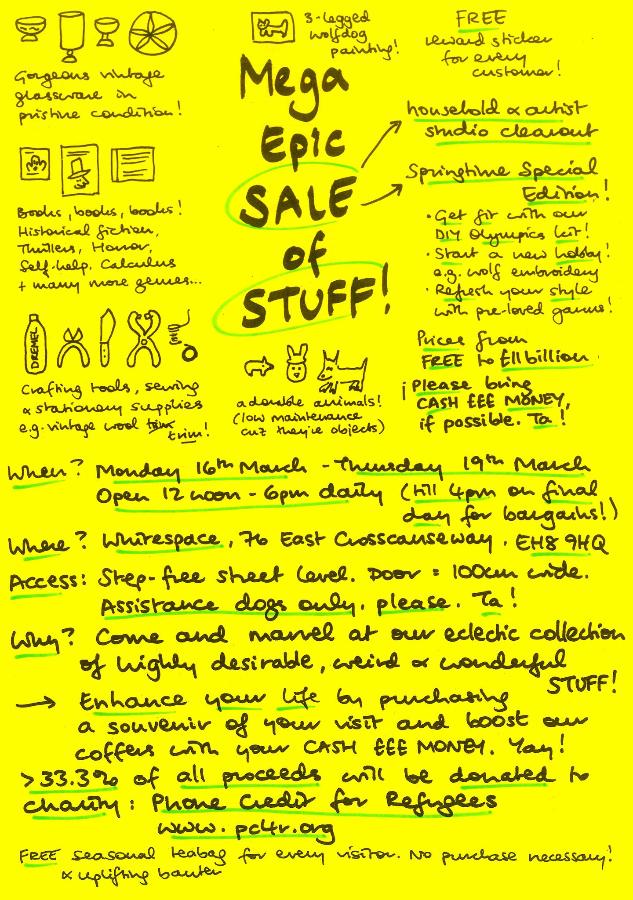 Gorgeous vintage
glassware in
pristine condition!
3-legged
wolfdog
painting!
FREE
reward sticker
for every
customer!
Mega
Epic
SALE
of
STUFF!
household & artist
studio clearout
Springtime Special
Edition!
· Get fit with our
DIY Olympics kit!
· Start a new hobby!
e.g. wolf embroidery
· Refresh your style
with pre-loved garms!
Books, books, books!
Historical fiction,
Thrillers, Horror,
Self-help, Calculus
+ many more genres...
DREMEL
Crafting tools, sewing
& stationary supplies
e.g. vintage wool trim!
adorable animals!
(low maintenance
cuz they're objects)
Prices from
FREE to £11 billion.
¡Please bring
CASH £££ MONEY,
if possible. Ta!
When? Monday 16th March - Thursday 19th March
Open 12 noon - 6pm daily (till 4pm on final
day for bargains!)
Where? Whitespace, 76 East Crosscauseway, EH8 9HQ
Access: Step-free street level. Door = 100cm wide.
Assistance dogs only, please. Ta!
Why? Come and marvel at our eclectic collection
of highly desirable, weird & wonderful
STUFF!
→ Enhance your life by purchasing
a souvenir of your visit and boost our
coffers with your CASH £££ MONEY. Yay!
>33.3% of all proceeds will be donated to
charity: Phone Credit for Refugees
www.pc4r.org
FREE seasonal teabag for every visitor. No purchase necessary!
& uplifting banter